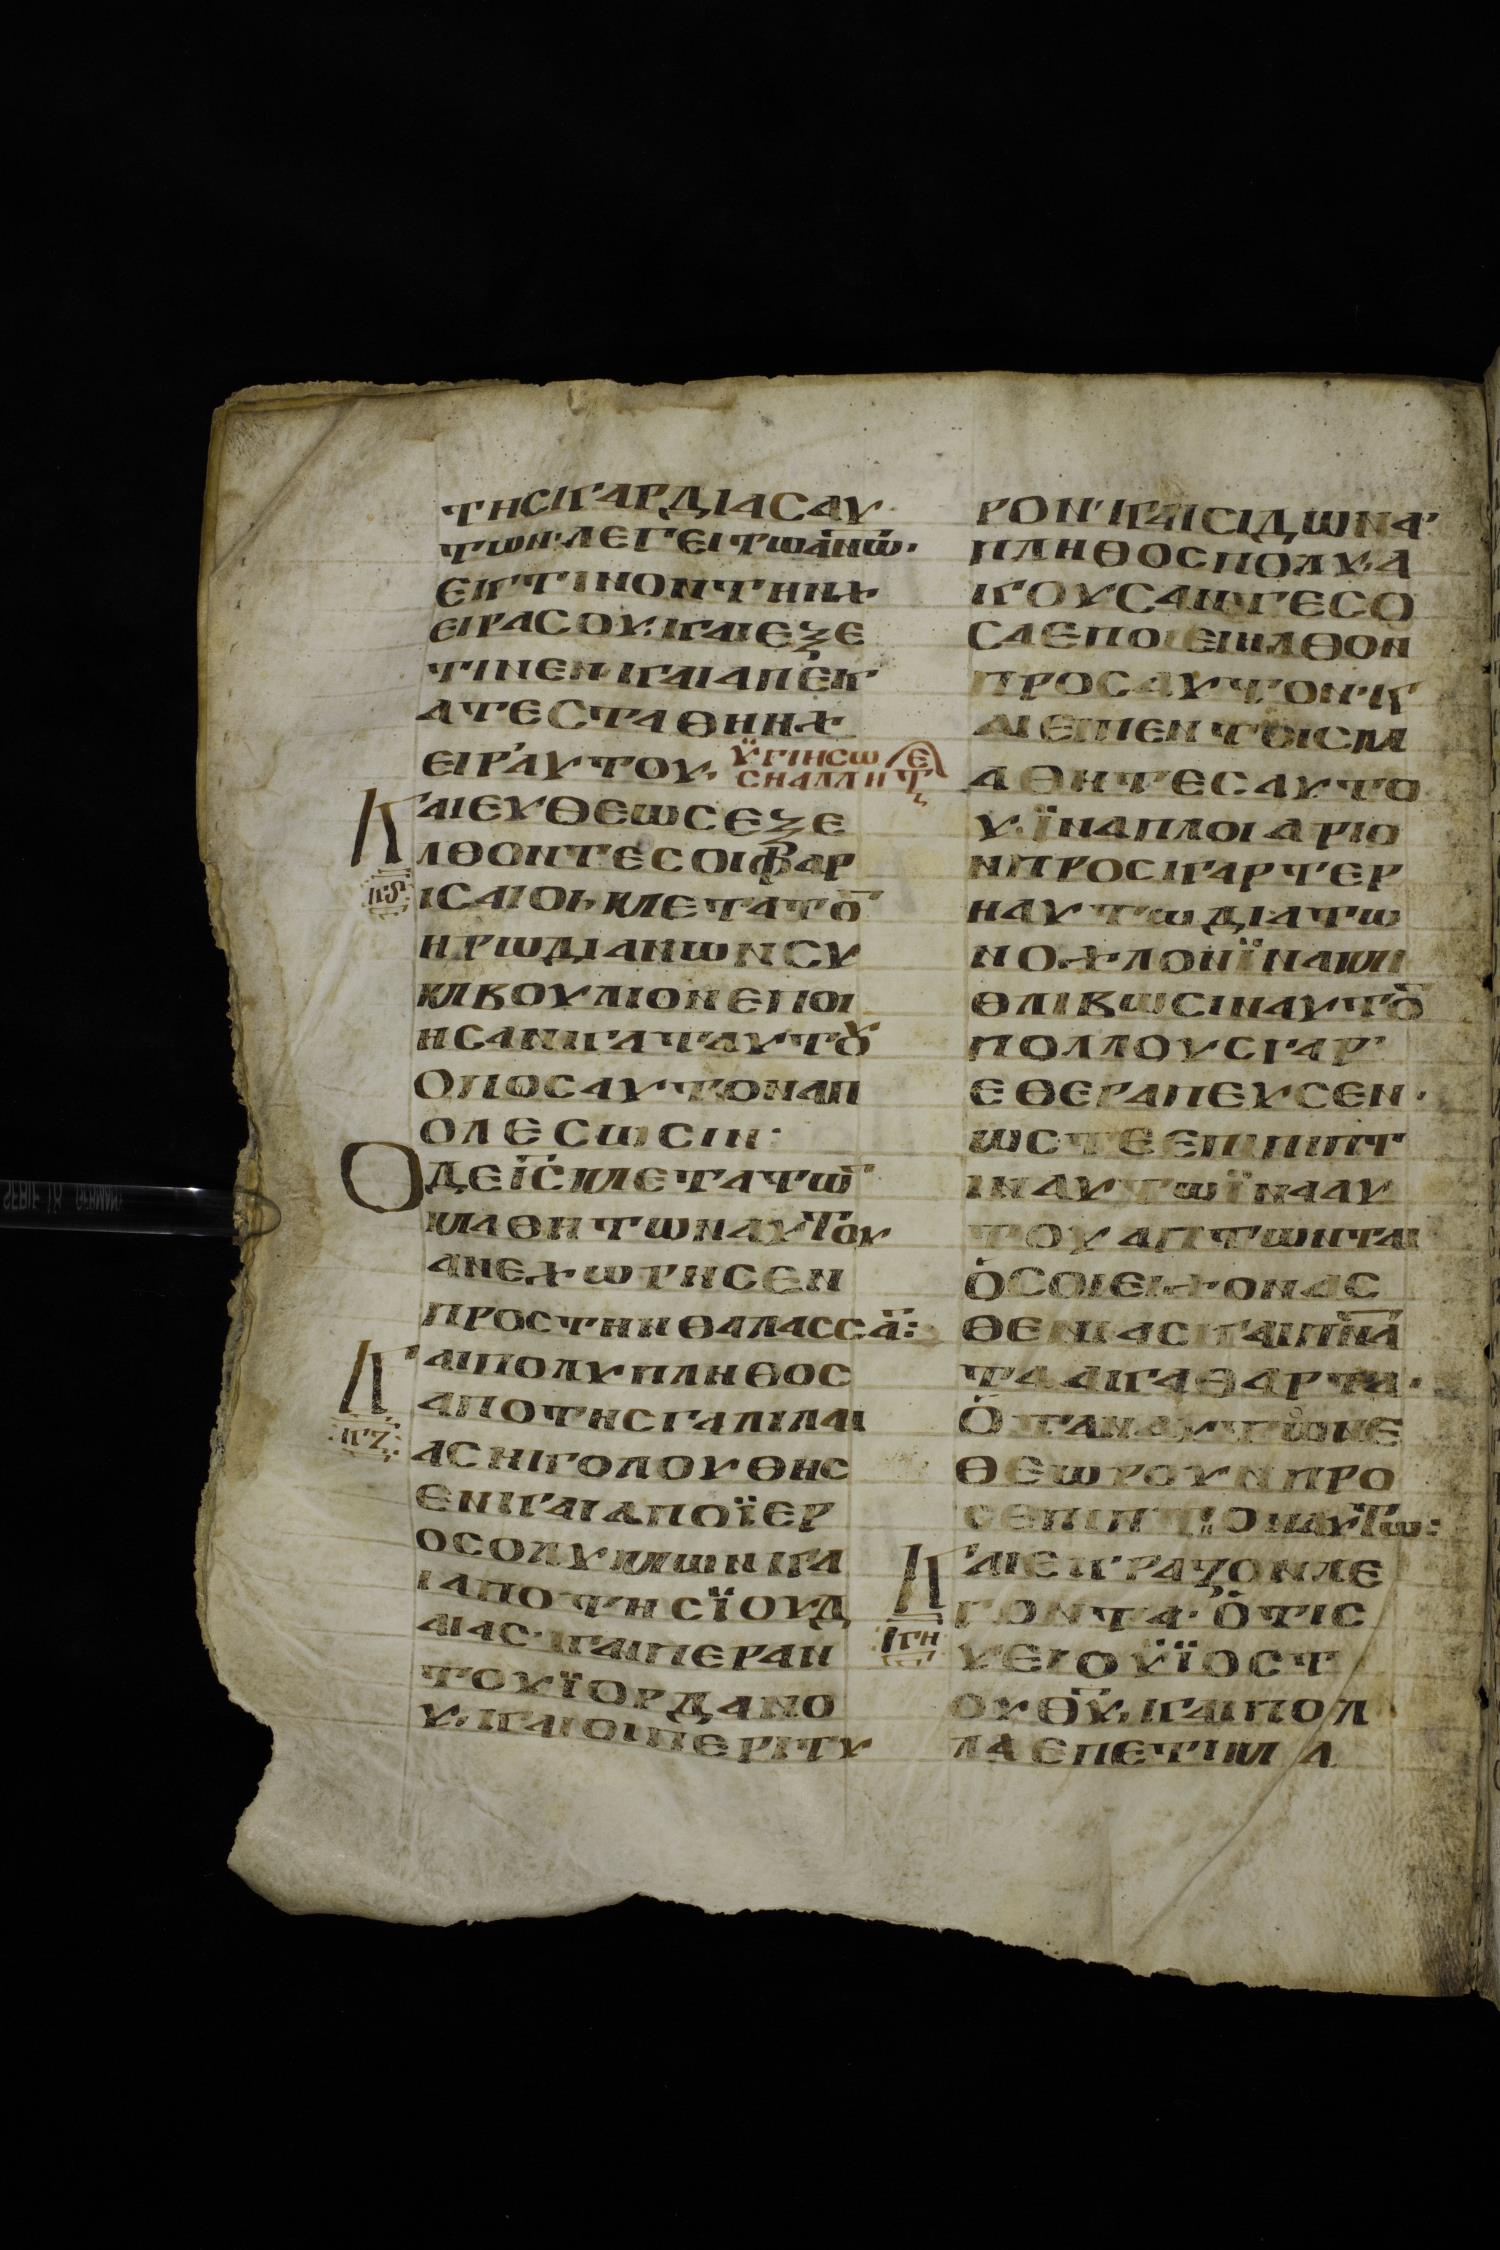 ΤΗϹΚΑΡΔΙΑϹΑΥ
ΤΩΝ·ΛΕΓΕΙΤΩΑ̅Ν̅Ω̅·
ΕΚΤΙΝΟΝΤΗΝΧ
ΕΙΡΑϹΟΥ·ΚΑΙΕΞΕ
ΤΙΝΕΝ·ΚΑΙΑΠΕΚ
ΑΤΕϹΤΑΘΗΗΧ
ΕΙΡΑΥΤΟΥ·
ΫΓΙΗϹΩ
ϹΗΑΛΛΗ
ΚΑΙΕΥΘΕΩϹΕΞΕ
ΛΘΟΝΤΕϹΟΙΦΑΡ
Κ̅Ϛ̅
ΙϹΑΙΟΙ·ΜΕΤΑΤΟ̅
ΗΡΩΔΙΑΝΩΝϹΥ
ΜΒΟΥΛΙΟΝΕΠΟΙ
ΗϹΑΝΚΑΤΑΥΤΟΥ
ΟΠΟϹΑΥΤΟΝΑΠ
ΟΛΕϹΩϹΙΝ·
ΟΔΕΙ̅Ϲ̅ΜΕΤΑΤΩ̅
ΜΑΘΗΤΩΝΑΥΤΟΥ
ΑΝΕΧΩΡΗϹΕΝ
ΠΡΟϹΤΗΝΘΑΛΑϹϹΑ̅:
ΚΑΙΠΟΛΥΠΛΗΘΟϹ
ΑΠΟΤΗϹΓΑΛΙΛΑΙ
Κ̅Ζ̅
ΑϹΗΚΟΛΟΥΘΗϹ
ΕΝΚΑΙΑΠΟΪΕΡ
ΟϹΟΛΥΜΩΝΚΑ
ΙΑΠΟΤΗϹΪΟΥΔ
ΑΙΑϹ·ΚΑΙΠΕΡΑΝ
ΤΟΥΪΟΡΔΑΝΟ
Υ·ΚΑΙΟΙΠΕΡΙΤΥ
ΡΟΝ·ΚΑΙϹΙΔΩΝΑ·
ΠΛΗΘΟϹΠΟΛΥ·Α
ΚΟΥϹΑΝΤΕϹΟ
ϹΑΕΠΟΙΕΙΗΛΘΟΝ
ΠΡΟϹΑΥΤΟΝ·Κ
ΑΙΕΙΠΕΝΤΟΙϹΜ
ΑΘΗΤΕϹΑΥΤΟ
Υ·ΪΝΑΠΛΟΙΑΡΙΟ
ΝΠΡΟϹΚΑΡΤΕΡ
ΗΑΥΤΩΔΙΑΤΩ
ΝΟΧΛΟΝΪΝΑΜΗ
ΘΛΙΒΩϹΙΝΑΥΤΟ̅
ΠΟΛΛΟΥϹΓΑΡ
ΕΘΕΡΑΠΕΥϹΕΝ·
ΩϹΤΕΕΠΙΠΙΠΤ
ΙΝΑΥΤΩΪΝΑΑΥ
ΤΟΥΑΠΤΩΝΤΑΙ
ΟϹΟΙΕΙΧΟΝΑϹ
ΘΕΝΙΑϹΚΑΙΠ̅Ν̅Α̅
ΤΑΑΚΑΘΑΡΤΑ·
ΟΤΑΝΑΥΤΩΝΕ
ΘΕΩΡΟΥΝΠΡΟ
ϹΕΠΙΠΤΟΝΑΥΤΩ:
ΚΑΙΕΚΡΑΖΟΝΛΕ
ΓΟΝΤΑ·ΟΤΙϹ
Κ̅Η̅
ΥΕΙΟΫΪΟϹΤ
ΟΥΘ̅Υ̅·ΚΑΙΠΟΛ
ΛΑΕΠΕΤΙΜΑ